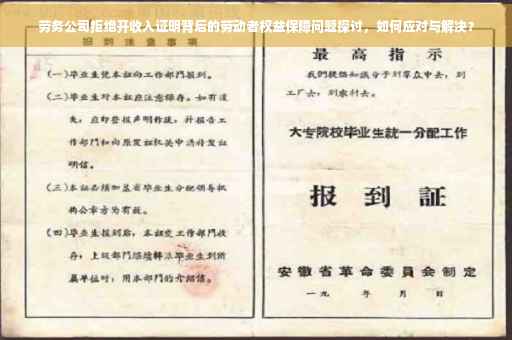 劳务公司拒绝开收入证明背后的劳动者权益保障问题探讨，如何应对与解决？
报到注意事项
(一)毕业生凭本证向工作部门报到。
(二)毕业生对本证应注意保存。如有遗
失，应即登报声明作废，并报告工
作部门和向原发证机关申请补发证
明信。
(三)本证必须加盖省毕业生分配领导机
构公章方为有效。
(四)毕业生报到后，本证交工作部门收
存；上级部门继续转派毕业生到所
属单位时，用本部门的介绍信。
最高指示
我们提倡知识分子到群众中去，到
工厂去，到农村去。
大专院校毕业生统一分配工作
报到证
安徽省革命委员会制定
一九 年 月 日